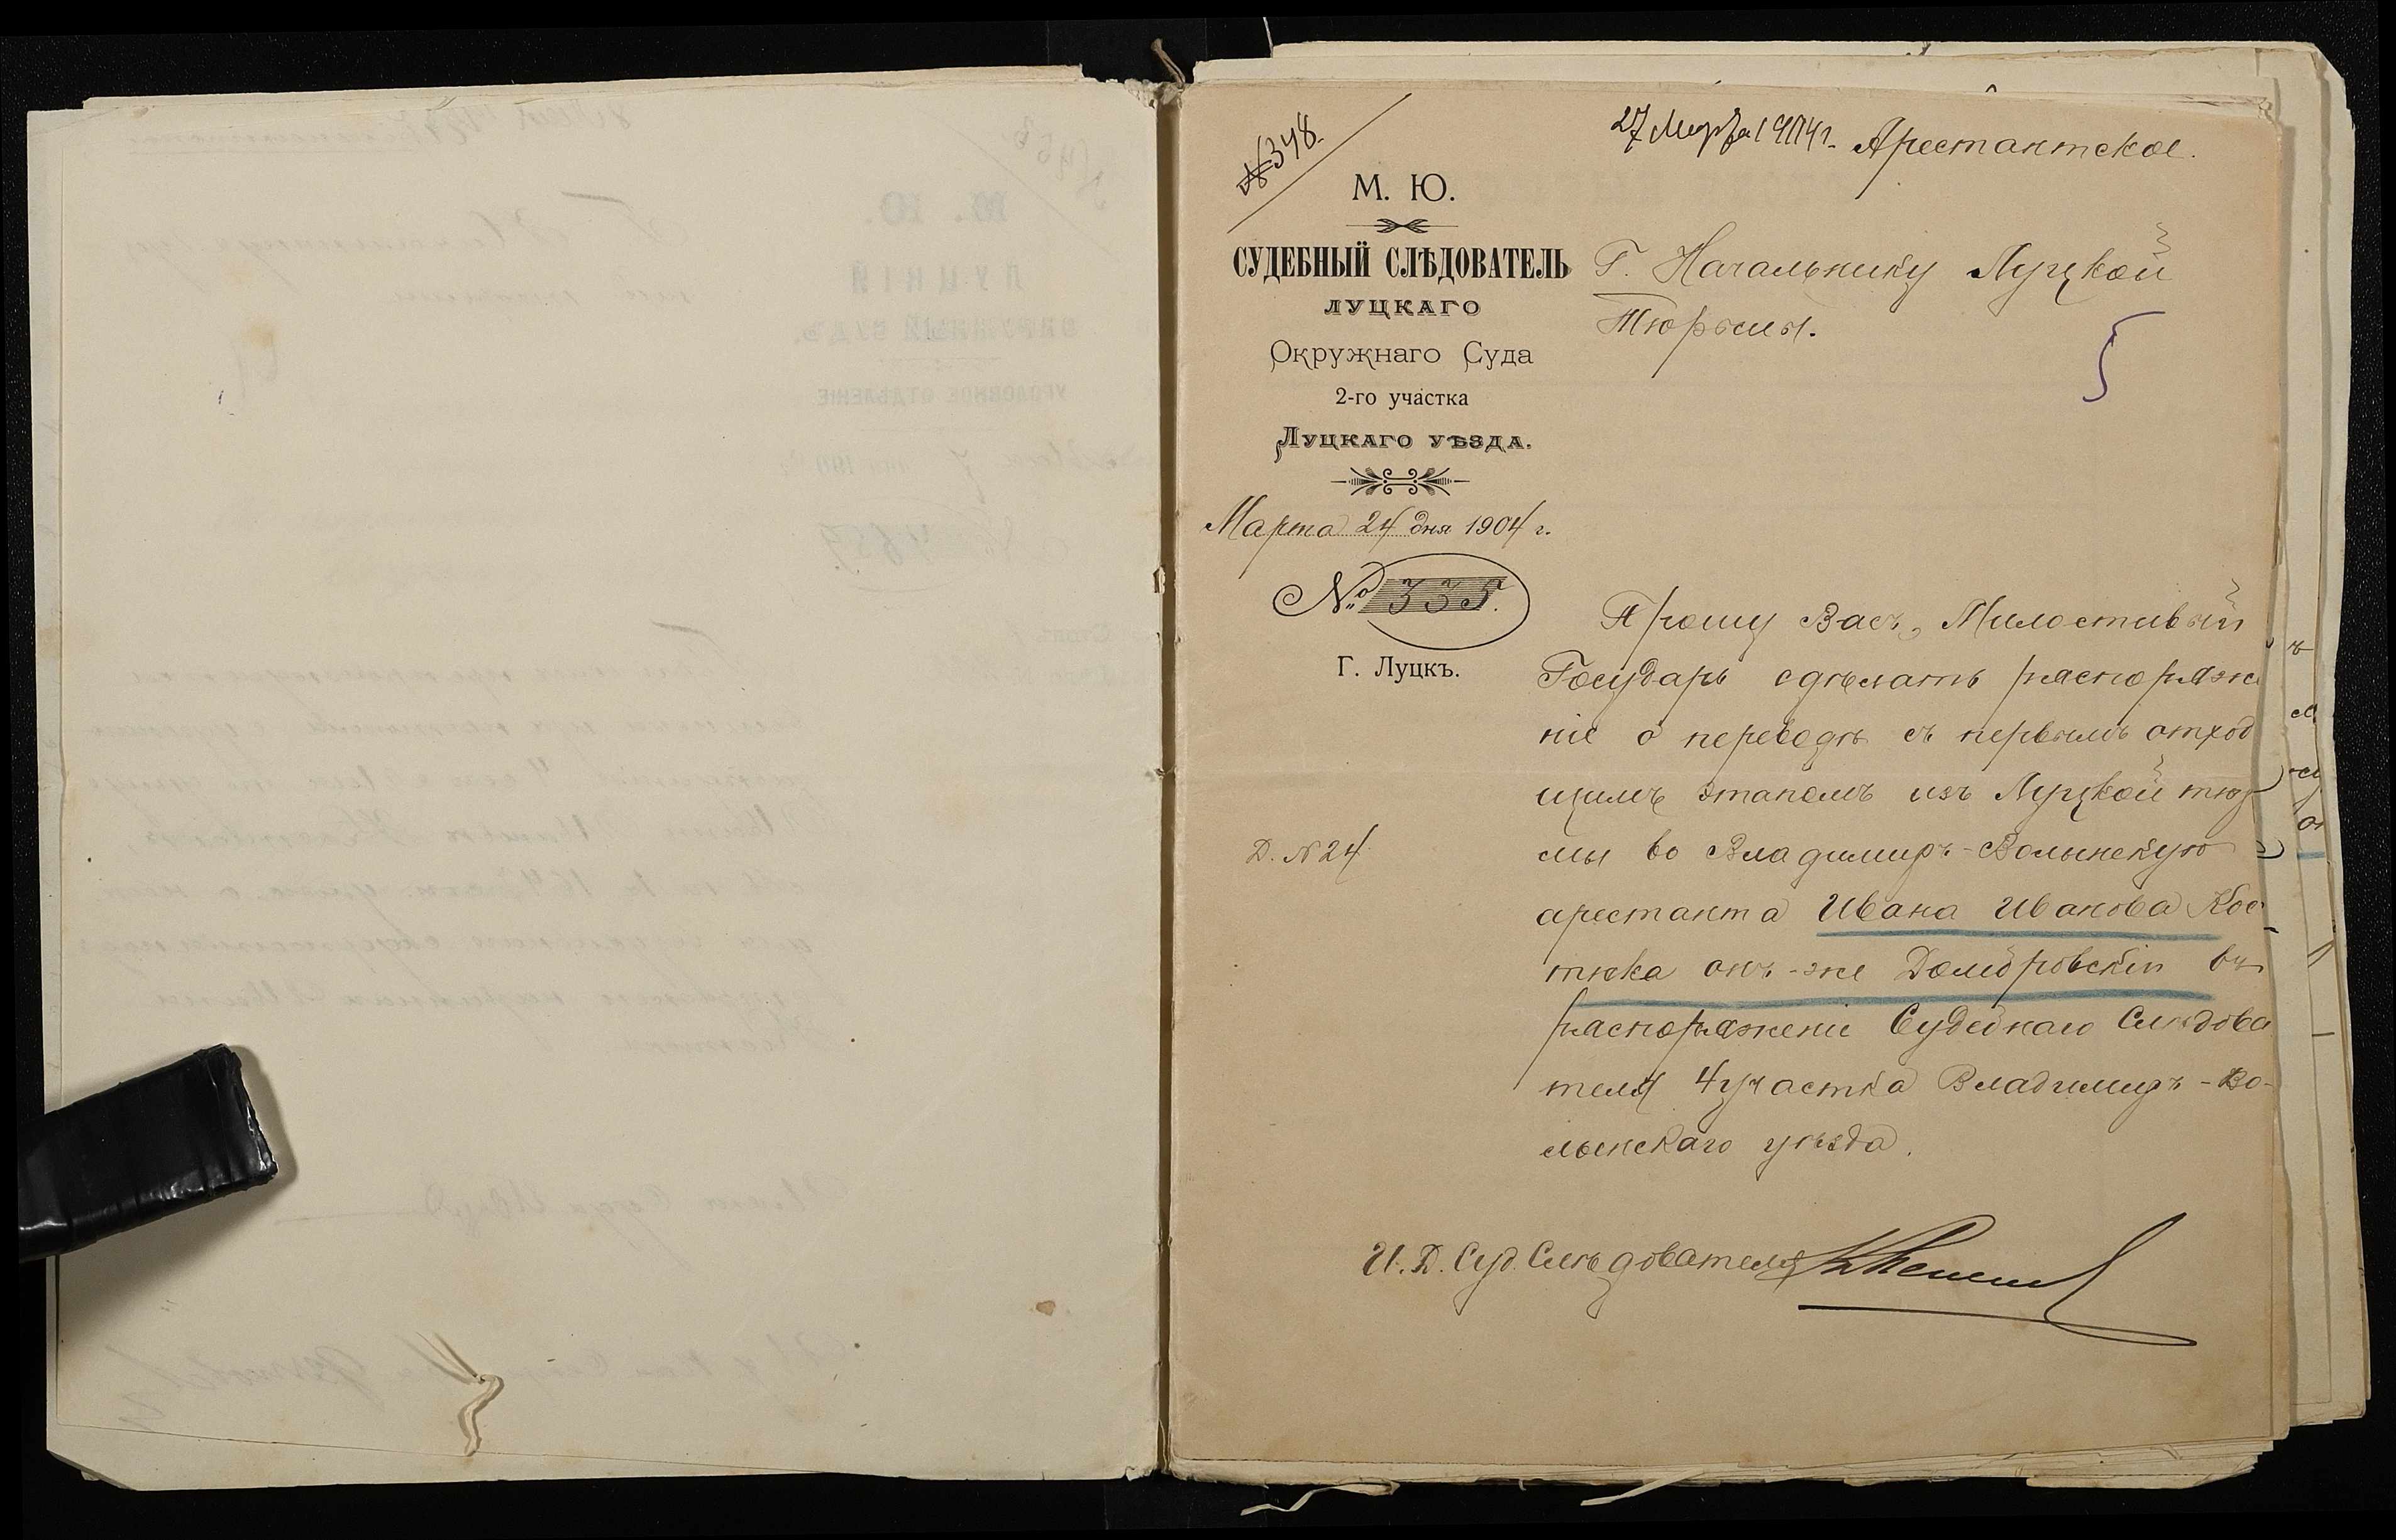 № 348.
27 Марта 1904 г. Арестантское.
М. Ю.
СУДЕБНЫЙ СЛѢДОВАТЕЛЬ
ЛУЦКАГО
Окружнаго Суда
2-го участка
Луцкаго уѣзда.
Марта 24 дня 1904 г.
№ 335.
Г. Луцкъ.
Д. № 24
Г. Начальнику Луцкой
Тюрьмы.
5
Прошу Васъ, Милостивый
Государь сдѣлать распоряже
ніе о переводѣ съ первымъ отход
щимъ этапомъ изъ Луцкой тюр
мы во Владимиръ-Волынскую
арестанта Ивана Иванова Кос
тюка онъ-же Домбровскій въ
распоряженіе Судебнаго Слѣдова
теля 4 участка Владимиръ-Во-
лынскаго уѣзда.
И. Д. Суд. Слѣдователя